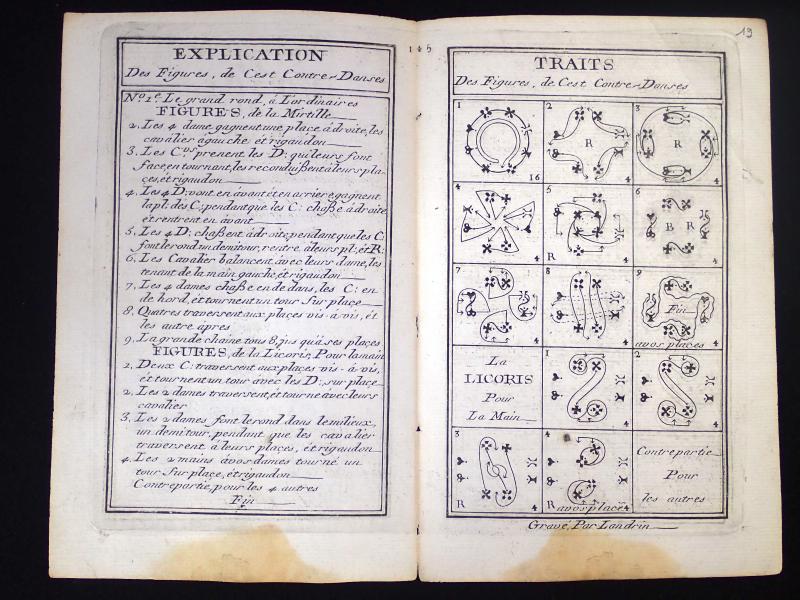 145
EXPLICATION
Des Figures, de Cest Contre-Danses
No. 1er. Le grand rond, á L'ordinaires
FIGURES, de la Mirtille
2. Les 4 dame gagnent une place, á droite, les
cavalier agauche et rigaudon
3. Les C.vs prenent, les D: qui leurs font
face, en tournant, les reconduissent á leurs pla-
ces, et rigaudon
4. Les 4 D: vont en avant et en arriere, gagnent
la pl: des C: pendant que les C: chaße á droite
et rentrent en avant
5. Les 4 D: chaßent á droite, pendant que les C:
font le rond un demitour, rentre, á leurs pl: et R:
6. Les Cavalier balancent avec leurs dame, les
tenant de la main gauche, et rigaudon
7. Les 4 dames chaße en de dans, les C: en
de hord, et tournent un tour sur place
8. Quatres traversent aux places vis-á-vis, et
les autre apres
9. La grande chaine tous 8, jus qu'á ses places
FIGURES, de la Licoris, Pour la main
1. Deux C: traversent aux places vis-á-vis,
et tournent un tour avec les D: sur place
2. Les 2 dames traversent, et tourne avec leurs
cavalier
3. Les 2 dames font le rond dans le milieux,
un demi tour, pendant que les cavalier
traversent á leurs places, et rigaudon
4. Les 2 mains á vos dames tourné un
tour sur place, et rigaudon
Contrepartie, pour les 4 autres
Fin
19
TRAITS
Des Figures, de Cest Contre-Danses
1 16
2 R 4
3 R 4
4 4
5 R 4
6 B R 4
7 4
8 4
9 Fin
a vos places 4
La
LICORIS
Pour
La Main
1 4
2 4
3 R 4
4 R a vos place 4
Contrepartie
Pour
les autres
Gravé, Par Landrin